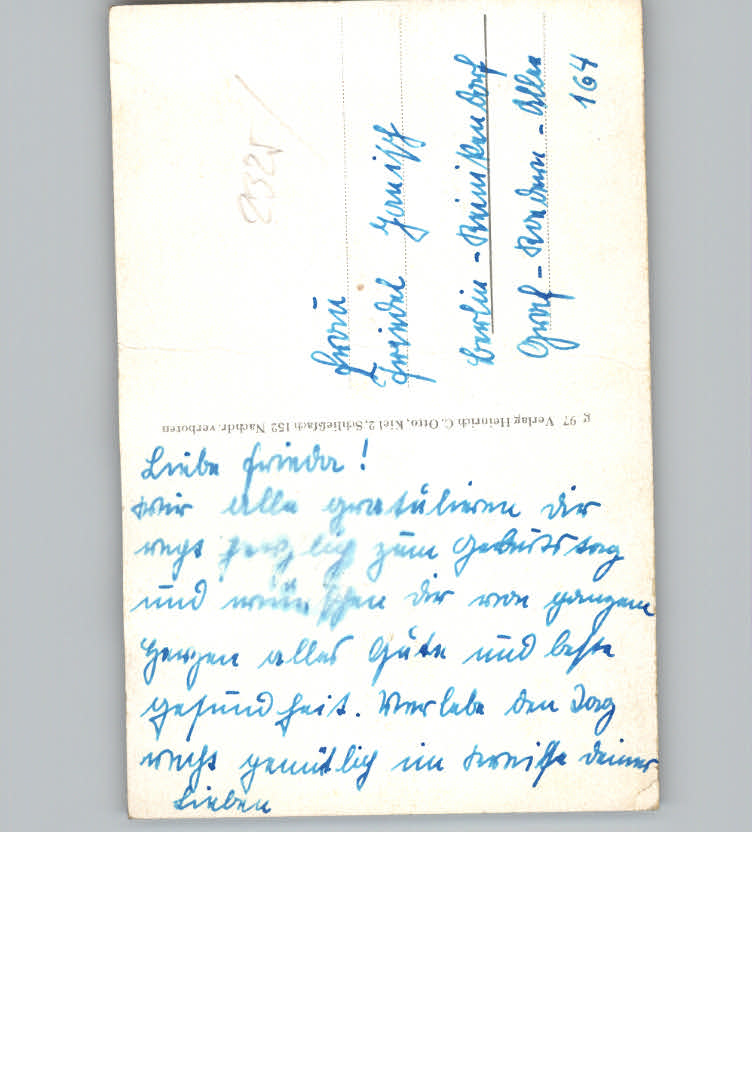 Liebe Frieda!
Wir alle gratulieren dir
recht herzlich zum Geburtstag
und wünschen dir von ganzem
Herzen alles Gute und beste
Gesundheit. Verlebe den Tag
recht gemütlich im Kreise deiner
Lieben
g 97 Verlag Heinrich C. Otto, Kiel 2, Schließfach 152 Nachdr. verboten
Frau
Friedel
Berlin-Reinikendorf
Graf-Roedern-Allee
164